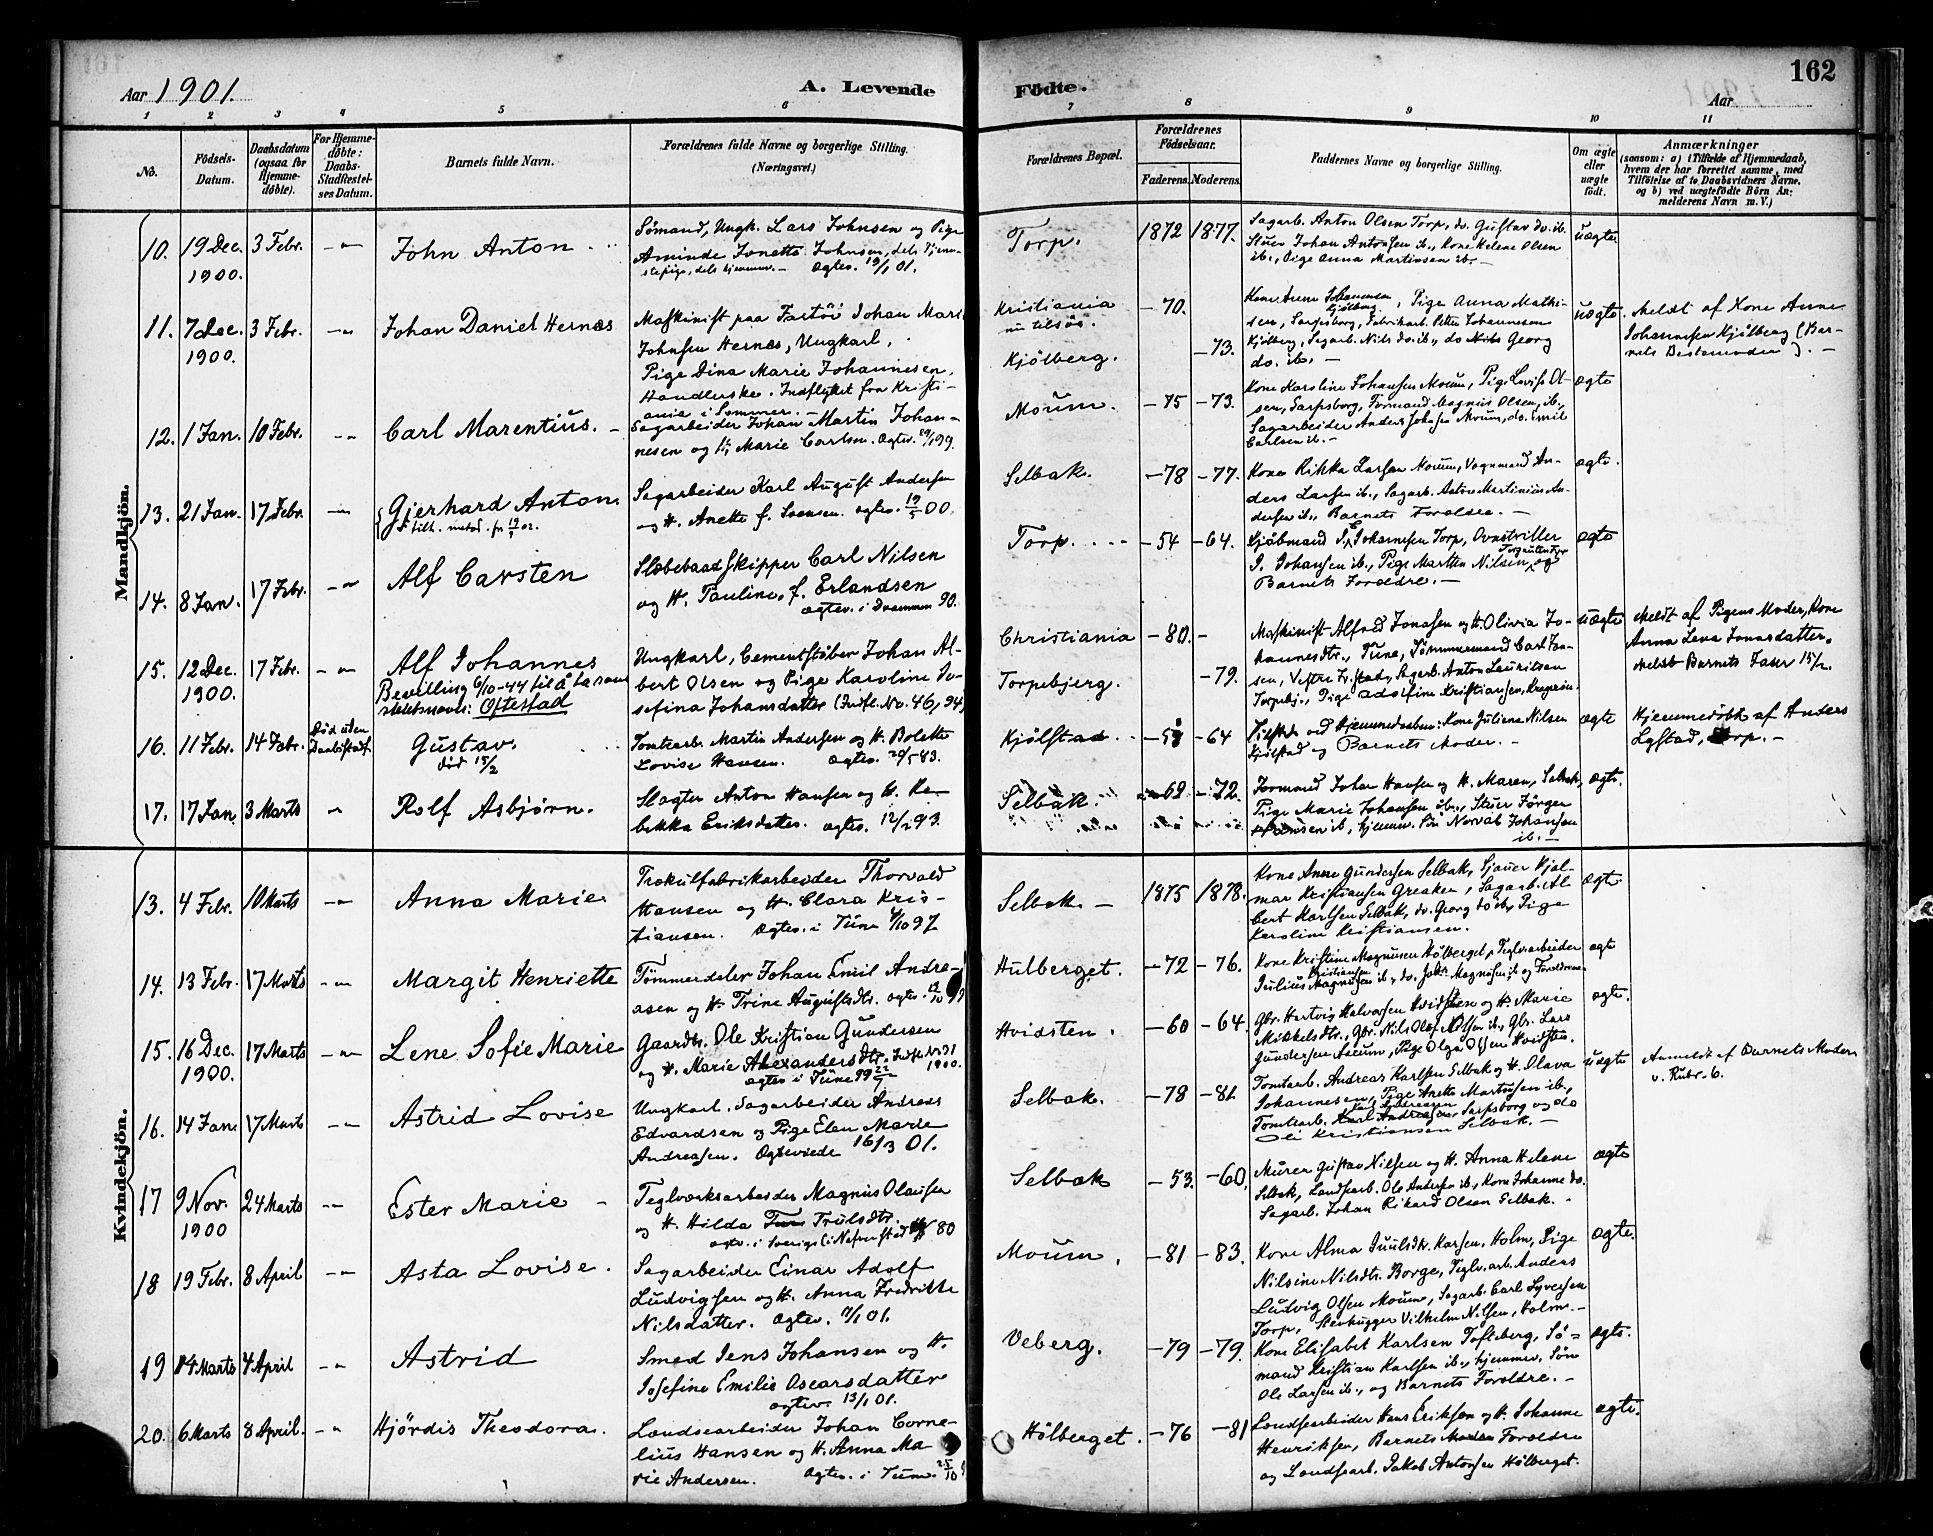 Aar 1901.
A. Levende
Födte.
162
Aar
1 2 3 4 5 6 7 8 9 10 11
No.
Födsels-
Datum.
Daabsdatum
(ogsaa for
Hjemme-
döbte).
For Hjemme-
döbte:
Daabs-
Stadfæstel-
ses Datum.
Barnets fulde Navn.
Forældrenes fulde Navne og borgerlige Stilling.
(Næringsvei.)
Forældrenes Bopæl.
Forældrenes
Födselsaar.
Faderens. Moderens.
Faddernes Navne og borgerlige Stilling.
Om ægte
eller
uægte
födt.
Anmærkninger
(saasom: a) i Tilfælde af Hjemmedaab,
hvem der har forrettet samme, med
Tilföielse af to Daabsvidners Navne,
og b) ved uægtefödte Börn An-
melderens Navn m. V.)
Mandkjön.
10. 19 Dec. 1900. 3 Febr. John Anton
Sømand, Ungk. Lars Johnsen og Pige
Aminde Jonette Johnsen, dels Tjene-
stepige, dels hjemme. – Ægtev. 19/1 01.
Torp. 1872 1877.
Sagarb. Anton Olsen Torp, do. Gustav do. ib.
Stuer Johan Antonsen ib., Kone Helene Olsen
ib., Pige Anna Martinsen ib. –
uægte
11. 7 Dec. 1900. 3 Febr. Johan Daniel Hernæs
Maskinist paa Fartøi Johan Mari
Johnsen Hernæs, Ungkarl,
Pige Dina Marie Johannesen,
Handlerske. Indflyttet fra Kristi-
ania i Sommer. –
Kristiania
nu tilsøs. –70.
Kjølberg. –73.
Kone Anne Johannesen Kjølberg, Pige Anna Mathi-
sen, Sarpsborg, Fabrikarb. Peter Johannesen
Kjølberg, Sagarb. Nils do. ib., do Nils Georg
do. ib. –
uægte
Meldt af Kone Anne
Johannesen Kjølberg (Bar-
nets Bestemoder). –
12. 1 Jan. 10 Febr. Carl Marentius. –
Sagarbeider Johan Martin Johan-
nesen og H. Marie Carlsen. Ægtev. 29/1 99.
Moum. –75 –73.
Kone Karoline Johansen Moum, Pige Lovise Ol-
sen, Sarpsborg, Formand Magnus Olsen, ib.,
Sagarbeider Anders Johnsen Moum, do. Emil
Carlsen ib. –
ægte
13. 21 Jan. 17 Febr. Gjerhard Anton.
tilh. metod. fr. 02.
Sagarbeider Karl August Andersen
og H. Anette f. Svensen. Ægtev. 19/5 00.
Selbak. –78 –77.
Kone Rikka Larsen Moum, Vognmand An-
ders Larsen ib., Sagarb. Anton Martinius An-
dersen ib., Barnets Forældre. –
ægte.
14. 8 Jan. 17 Febr. Alf Carsten
Slæbebaadskipper Carl Nilsen
og H. Pauline, f. Erlandsen
Ægtev. i Drammen 90.
Torp. –54 –64.
Kjøbmand Johannesen Torp,
J. Johansen ib., Pige Marthe Nilsen, og
Barnets Forældre. –
ægte
15. 12 Dec. 1900. 17 Febr. Alf Johannes
Bevilling 6/10-44 til å ta som
slektsnavn: Oftestad
Ungkarl, Cementstøber Johan Al-
bert Olsen og Pige Karoline Jo-
sefina Johansdatter (Indfl. No. 46, 94)
Christiania –80. –
Torpebjerg. –79.
Maskinist Alfred Jonasen og H. Olivia Jo-
hannesdtr., Tune, Tømmermand Carl
sen, Vestre Fr.stad, Sagarb. Anton Lauritsen
Torpebj., Pige Adolfine Kristiansen,
uægte
Meldt af Pigens Moder, Kone
Anna Lena Jonasdatter.
Meldt Barnets Fader 15/2.
16. 11 Febr. 14 Febr. Død uden
Daabsstadf. Gustav.
død 15/2
Tomtearb. Martin Andersen og H. Bolette
Lovise Hansen. Ægtev. 20/5 83.
Kjølstad –64
Tilstede ved Hjemmedaaben: Kone Juliane Nilsen
Kjølstad og Barnets Moder. –
ægte
Hjemmedøbt af Anders
Lystad, Torp. –
17. 17 Jan. 3 Marts Rolf Asbjørn.
Slagter Anton Hansen og H. Re-
bekka Eriksdatter. Ægtev. 12/2 93.
Selbak. –69 –72.
Formand Johan Hansen og H. Maren, Selbak,
Pige Marie Johansen ib., Stuer Jørgen
Hansen ib., hjemmev. Søn Norval Johansen
ib. –
ægte.
Kvindekjön.
13. 4 Febr. 10 Marts Anna Marie
Trækulfabrikarbeider Thorvald
Hansen og H. Clara Kris-
tiansen. Ægtev. i Tune 4/10 97
Selbak. – 1875 1878.
Kone Anne Gundersen Selbak, Sjauer Hjal-
mar Kristiansen Greaker, Sagarb. Al-
bert Karlsen Selbak, do. Georg do ib., Pige
Karoline Kristiansen.
ægte.
14. 13 Febr. 17 Marts Margit Henriette
Tømmerdeler Johan Emil Andre-
asen og H. Trine Augustsdtr. Ægtev.
Hulberget. –72 –76.
Kone Kristine Magnusen Hølberget, Teglv.arbeider
Julius Kristiansen ib., do. Magnusen ib. og Forældrene
ægte
15. 16 Dec. 1900. 17 Marts Lene Sofie Marie
Gaardbr. Ole Kristian Gundersen
og H. Marie Alexandersdtr. Indfl. No 21
1900. Ægtev i Tune 99
Hvidsten. –60 –64.
Gbr. Hartvig Halvorsen Hvidsten og H. Marie
Mikkelsdtr., Gbr. Nils Olaf Nilsen ib., Gbr. Lars
Gundersen Aseum, Pige Olga Olsen Hvidsten.
ægte.
16. 14 Jan. 17 Marts Astrid Lovise
Ungkarl. Sagarbeider Andreas
Edvardsen og Pige Elen Marie
Andreasen. Ægteviede 16/3 01.
Selbak. –78 –82
Tomtearb. Andreas Karlsen Selbak og H. Olava
Johannesen, Pige Anette Martinsen ib.,
Tomtearb. Karl Andreasen, Sarpsborg og do
Oli Kristiansen Selbak. –
uægte
Anmeldt af Barnets Moder
v. Rubr. 6.
17 9 Nov. 1900 24 Marts Ester Marie –
Teglværksarbeider Magnus Olausen
og H. Hilda Trulsdtr.
ægtv. i Sverige (i Nafverstad) 80
Selbak –53. –60.
Murer Gustav Nilsen og H. Anna Helene
Selbak, Landsearb. Ole Andersen ib., Kone Johanne do.
Sagarb. Johan Rikard Olsen Selbak. –
ægte
18 19 Febr. 8 April Asta Lovise.
Sagarbeider Einar Adolf
Ludvigsen og H. Anna Fredrikke
Nilsdatter. Ægtev. 11/1 01.
Moum. –81 –83.
Kone Alma Juulsdtr. Karsen, Holm, Pige
Nilsine Nilsdtr. Borge, Teglv.arb. Anders
Ludvig Olsen Moum, Sagarb. Carl Syversen
Torp, Stenhugger Vilhelm Nilsen, Holm. –
ægte.
19 14 Marts 4 April Astrid
Smed Jens Johansen og H.
Josefine Emilie Oscarsdatter
ægtev. 13/1 01.
Veberg. –79 –79.
Kone Elisabet Karlsen Tofteberg, Sø-
mand Kristian Karlsen ib., hjemmev. Søn
Ole Larsen ib., og Barnets Forældre. –
ægte.
20. 6 Marts 8 April. Hjørdis Theodora.
Landsearbeider Johan Corne-
lius Hansen og H. Anna Ma-
rie Andersen. Ægtev. i Tune 25/10
Hølberget. –76 –81
Landsearbeider Hans Eriksen og H. Johanne
Henriksen, Barnets Forældre
og Landsearb. Jakob Antonsen Hølberget.
ægte.